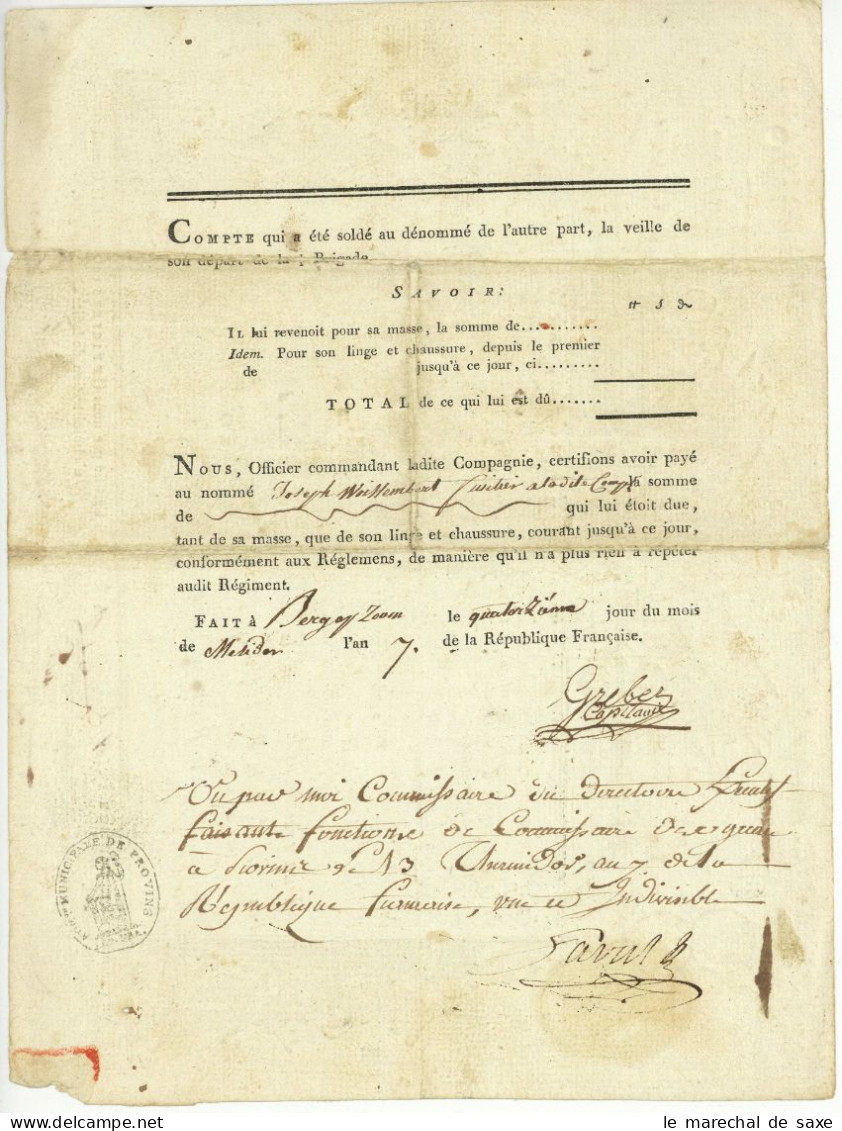 COMPTE qui a été soldé au dénommé de l'autre part, la veille de
son départ de la Brigade
SAVOIR:
IL lui revenoit pour sa masse, la somme de...........
Idem. Pour son linge et chaussure, depuis le premier
de jusqu'à ce jour, ci.........
TOTAL de ce qui lui est dû.......
NOUS, Officier commandant ladite Compagnie, certifions avoir payé
au nommé Joseph fusilier a ladite Comp la somme
de qui lui étoit due,
tant de sa masse, que de son linge et chaussure, courant jusqu'à ce jour,
conformément aux Réglemens, de manière qu'il n'a plus rien à répéter
audit Régiment.
FAIT À Bergopzoom le quatorzième jour du mois
de Mesidor l'an 7. de la République Française.
Greber
Capitaine
Vu par moi Commissaire du directoire
faisant fonctions de Commissaire
à 13 Thermidor, an 7 de la
République francaise, une et Indivisible
MUNICIPALE DE PROVINS
le marechal de saxe